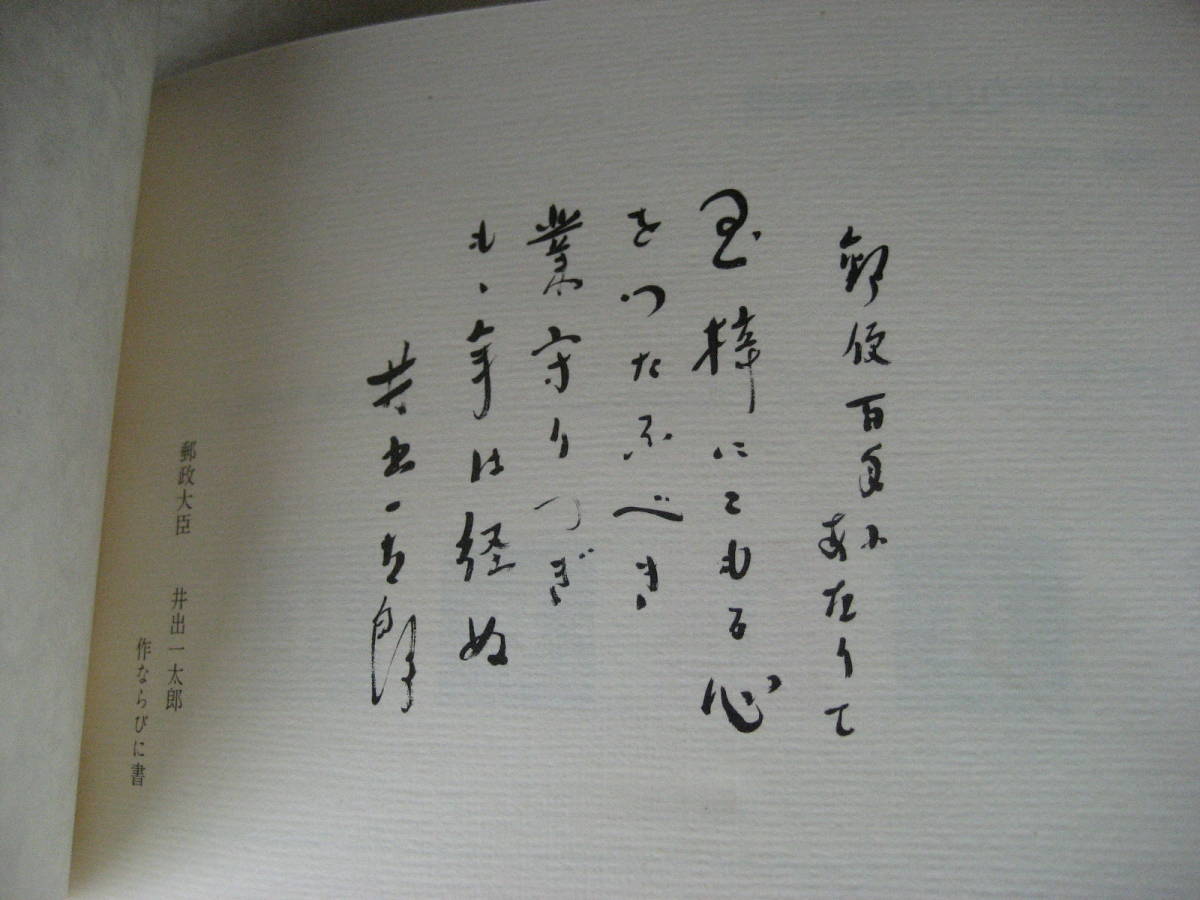 郵便百年にあたりて
玉梓にこもる心
をつたふべき
業守りつぎ
もゝ年は経ぬ
井出一太郎
郵政大臣 井出一太郎
作ならびに書